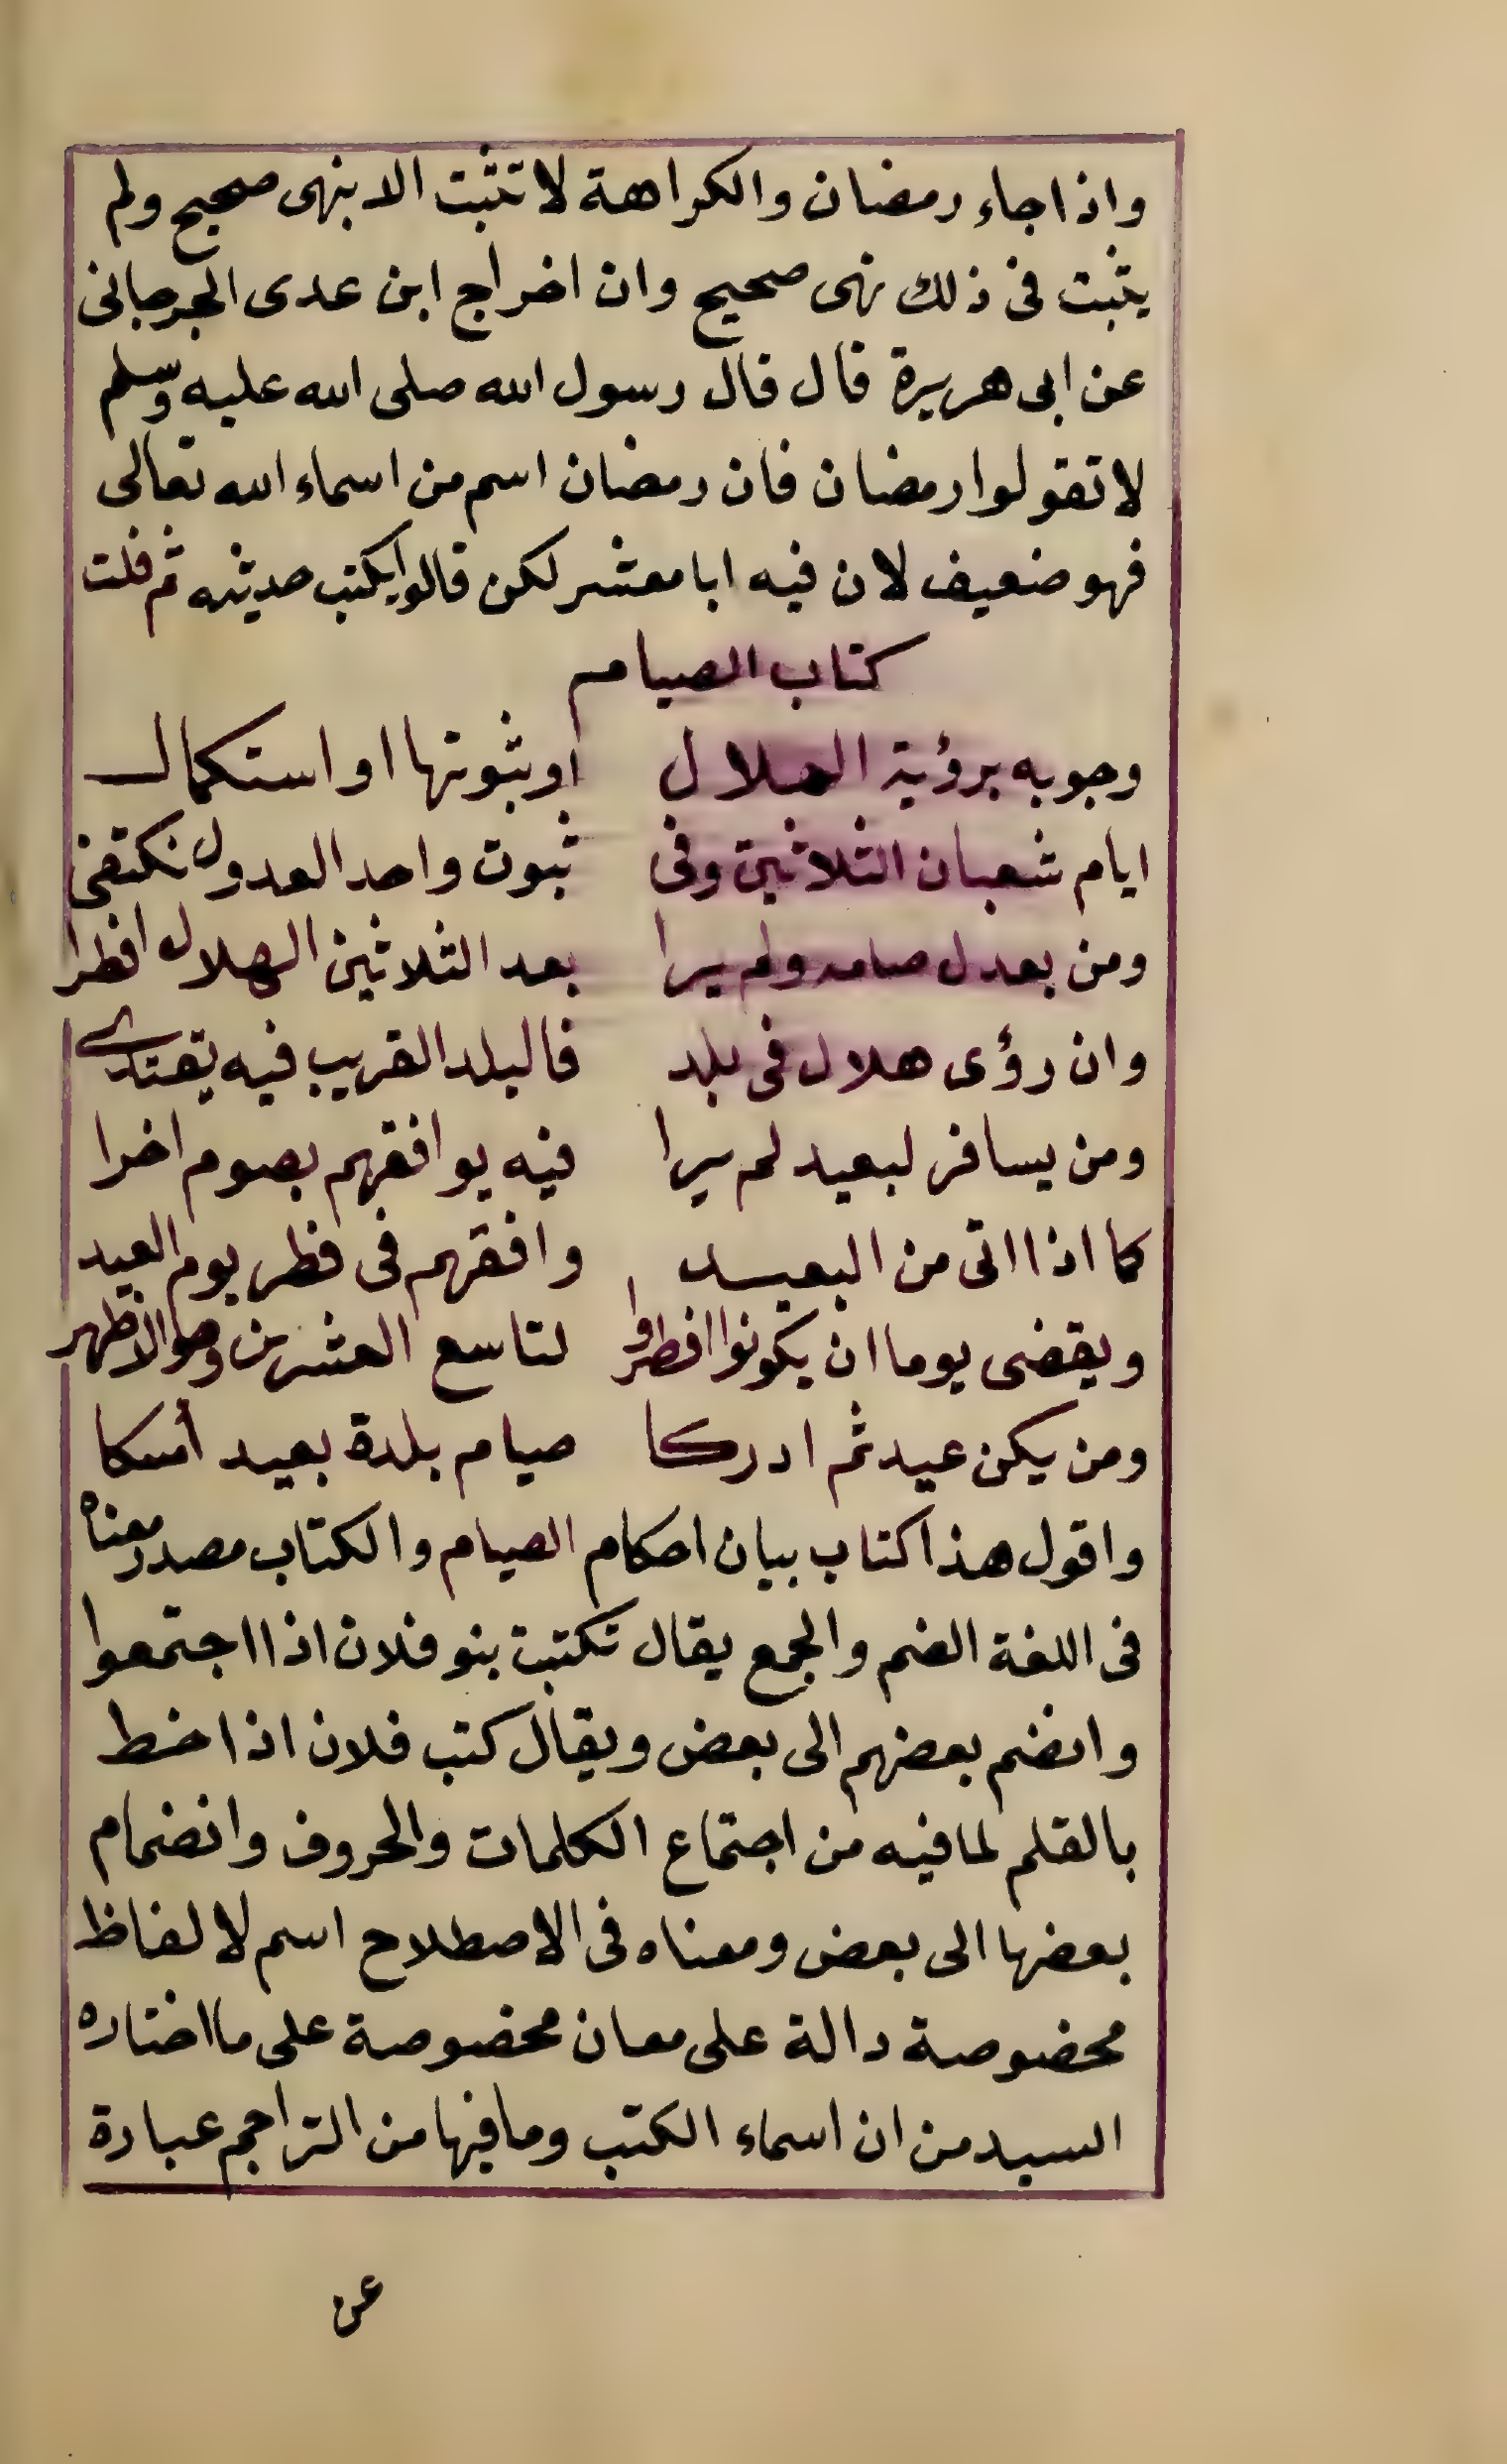 واذا جاء رمضان والكراهة لا تثبت الا بنهى صحيح ولم
يثبت فى ذلك نهى صحيح وان اخراج ابن عدى الجرجانى
عن ابى هريرة قال قال رسول الله صلى الله عليه وسلم
لا تقولوا رمضان فان رمضان اسم من اسماء الله تعالى
فهو ضعيف لان فيه ابا معشر لكن قالوا يكتب حديثه ثم قلت
كتاب الصيام
وجوبه برؤية الهلال اوثبوتها او استكمال
ايام شعبان الثلاثين وفى ثبوت واحد العدول نكتفى
ومن بعدل صامه ولم يرا بعد الثلاثين الهلال افطرا
وان رؤى هلال فى بلد فالبلد القريب فيه يقتدى
ومن يسافر لبعيد لم يرا فيه يوافقهم بصوم اخرا
كما اذا اتى من البعيد وافقهم فى فطر يوم العيد
ويقضى يوما ان يكونوا افطروا لتاسع العشرين وهو الاظهر
ومن يكن عيد ثم ادركا صيام بلدة بعيد أمسكا
واقول هذا كتاب بيان احكام الصيام والكتاب مصدر معناه
فى اللغة الضم والجمع يقال تكتبت بنو فلان اذا اجتمعوا
وانضم بعضهم الى بعض ويقال كتب فلان اذا خط
بالقلم لما فيه من اجتماع الكلمات والحروف وانضمام
بعضها الى بعض ومعناه فى الاصطلاح اسم لالفاظ
مخصوصة دالة على معان مخصوصة على ما اختاره
السيد من ان اسماء الكتب وما فيها من التراجم عبارة
عن